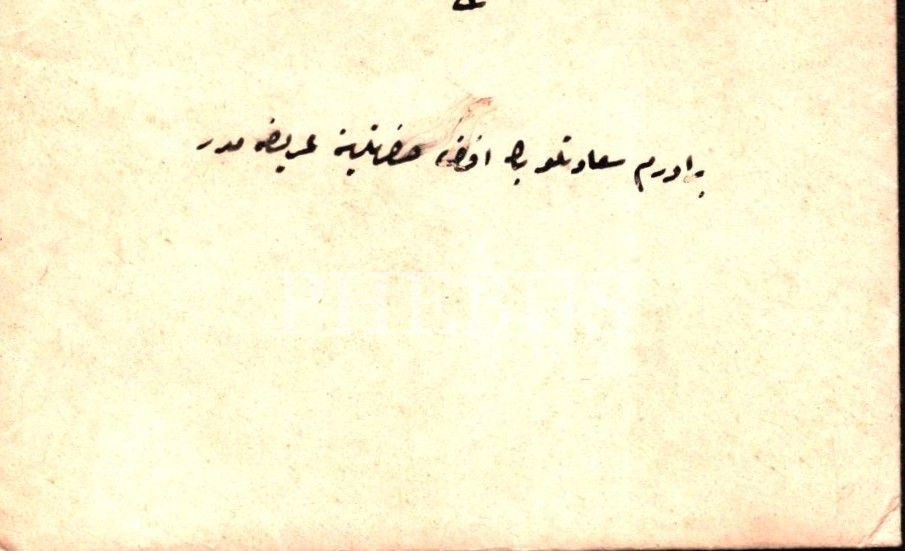 برادرم سعادتلو بك افندی حضرتلرینه عریضه مدر
PHEBUS